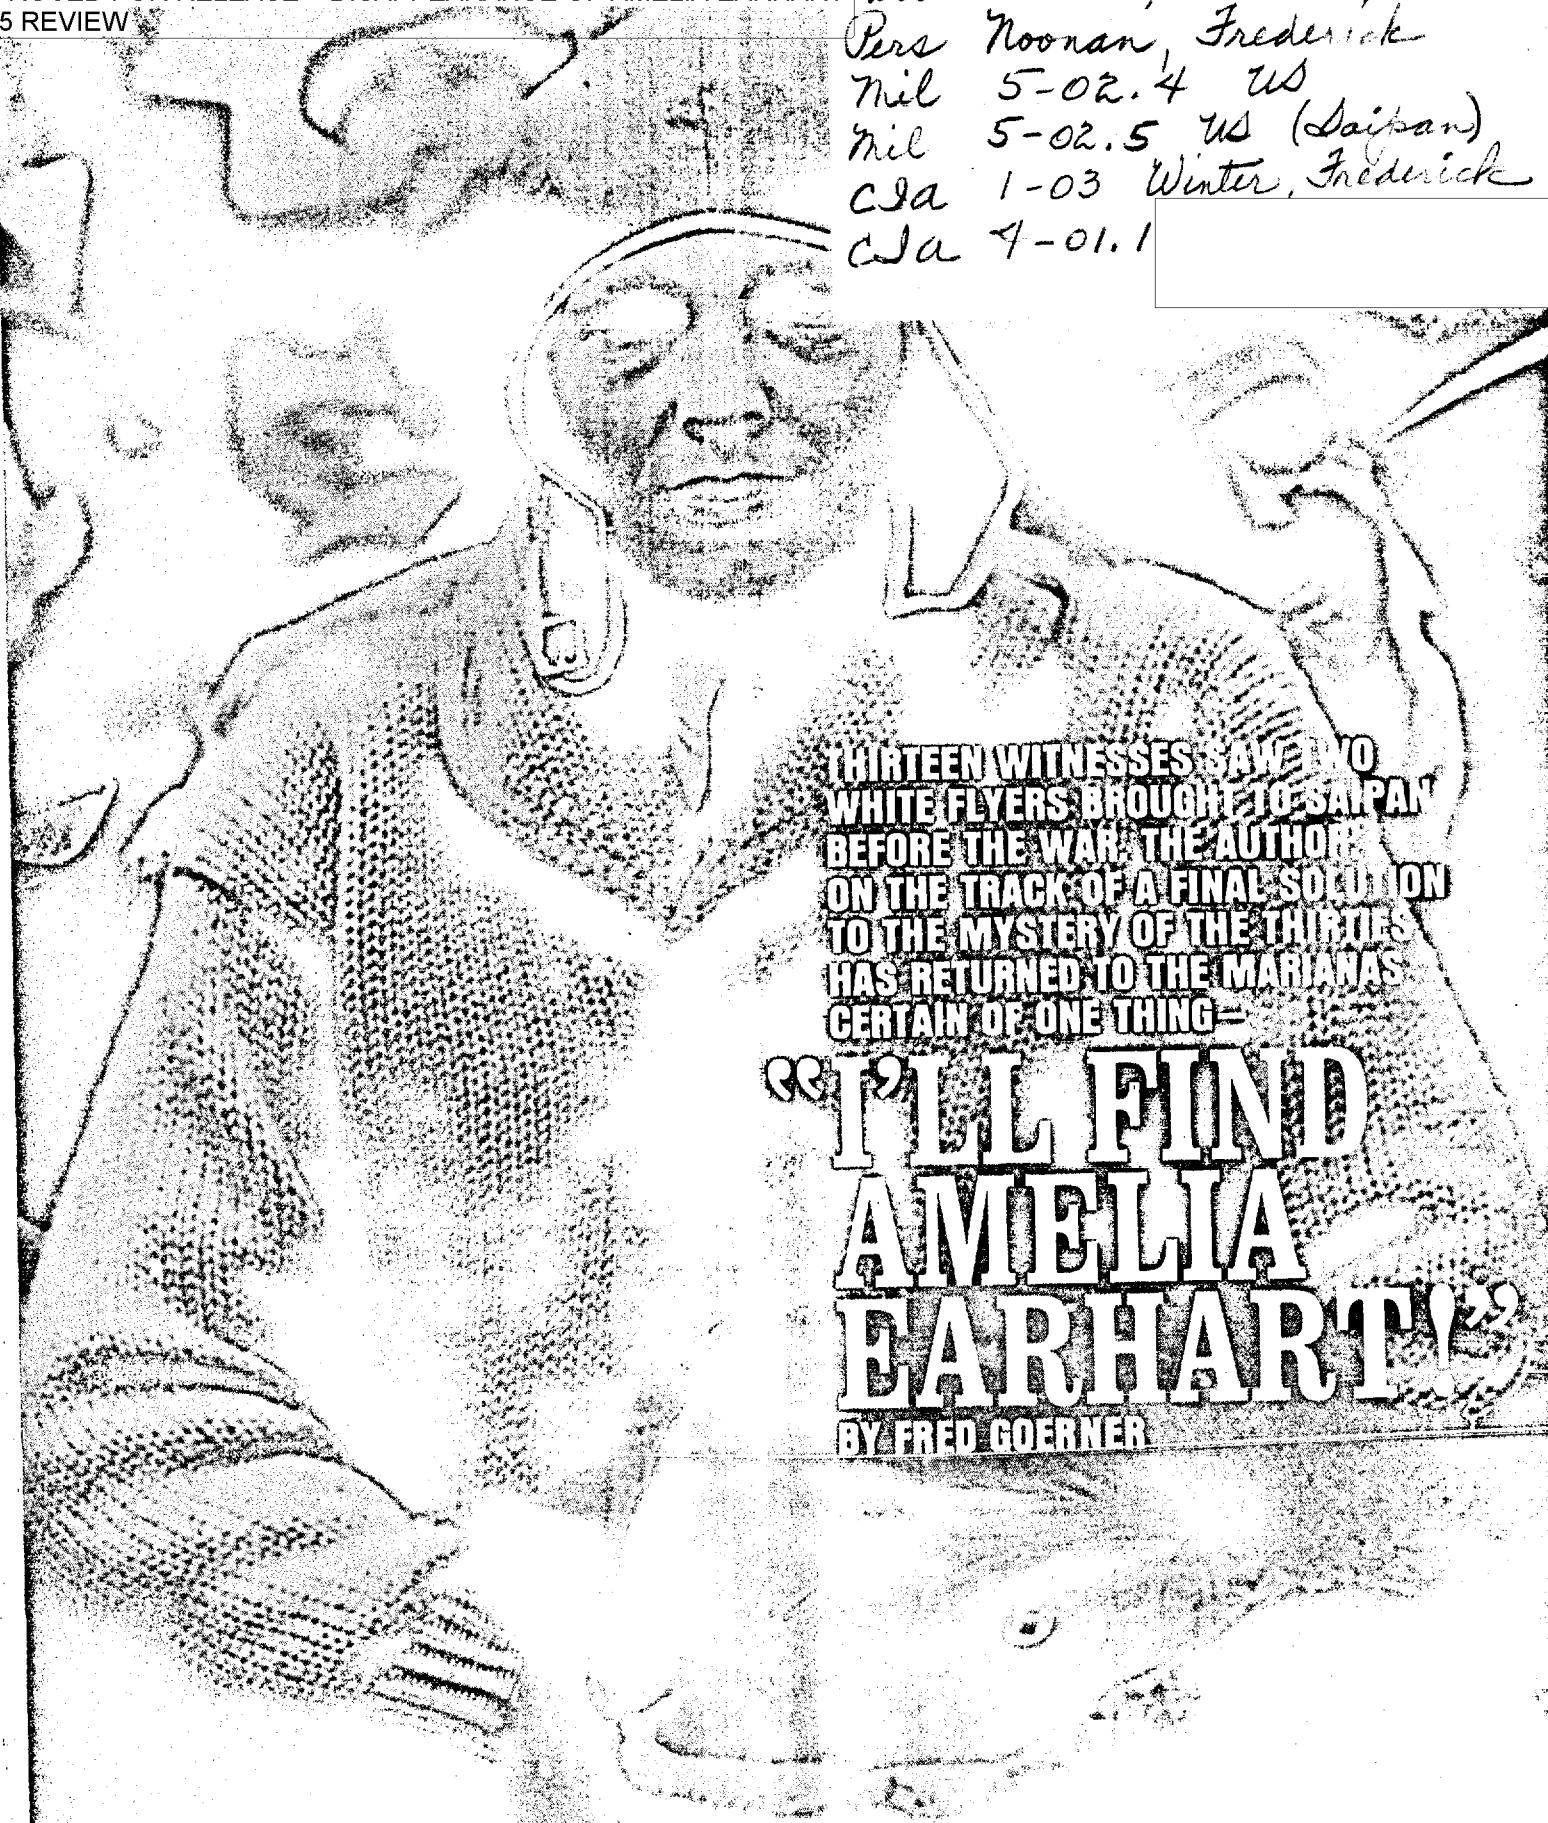 5 REVIEW
Pers Noonan, Frederick
Mil 5-02.4 US
Mil 5-02.5 US (Saipan)
CIa 1-03 Winter, Frederick
CIa 4-01.1
THIRTEEN WITNESSES SAW TWO
WHITE FLYERS BROUGHT TO SAIPAN
BEFORE THE WAR. THE AUTHOR,
ON THE TRACK OF A FINAL SOLUTION
TO THE MYSTERY OF THE THIRTIES
HAS RETURNED TO THE MARIANAS
CERTAIN OF ONE THING—
“I’LL FIND
AMELIA
EARHART!”
BY FRED GOERNER